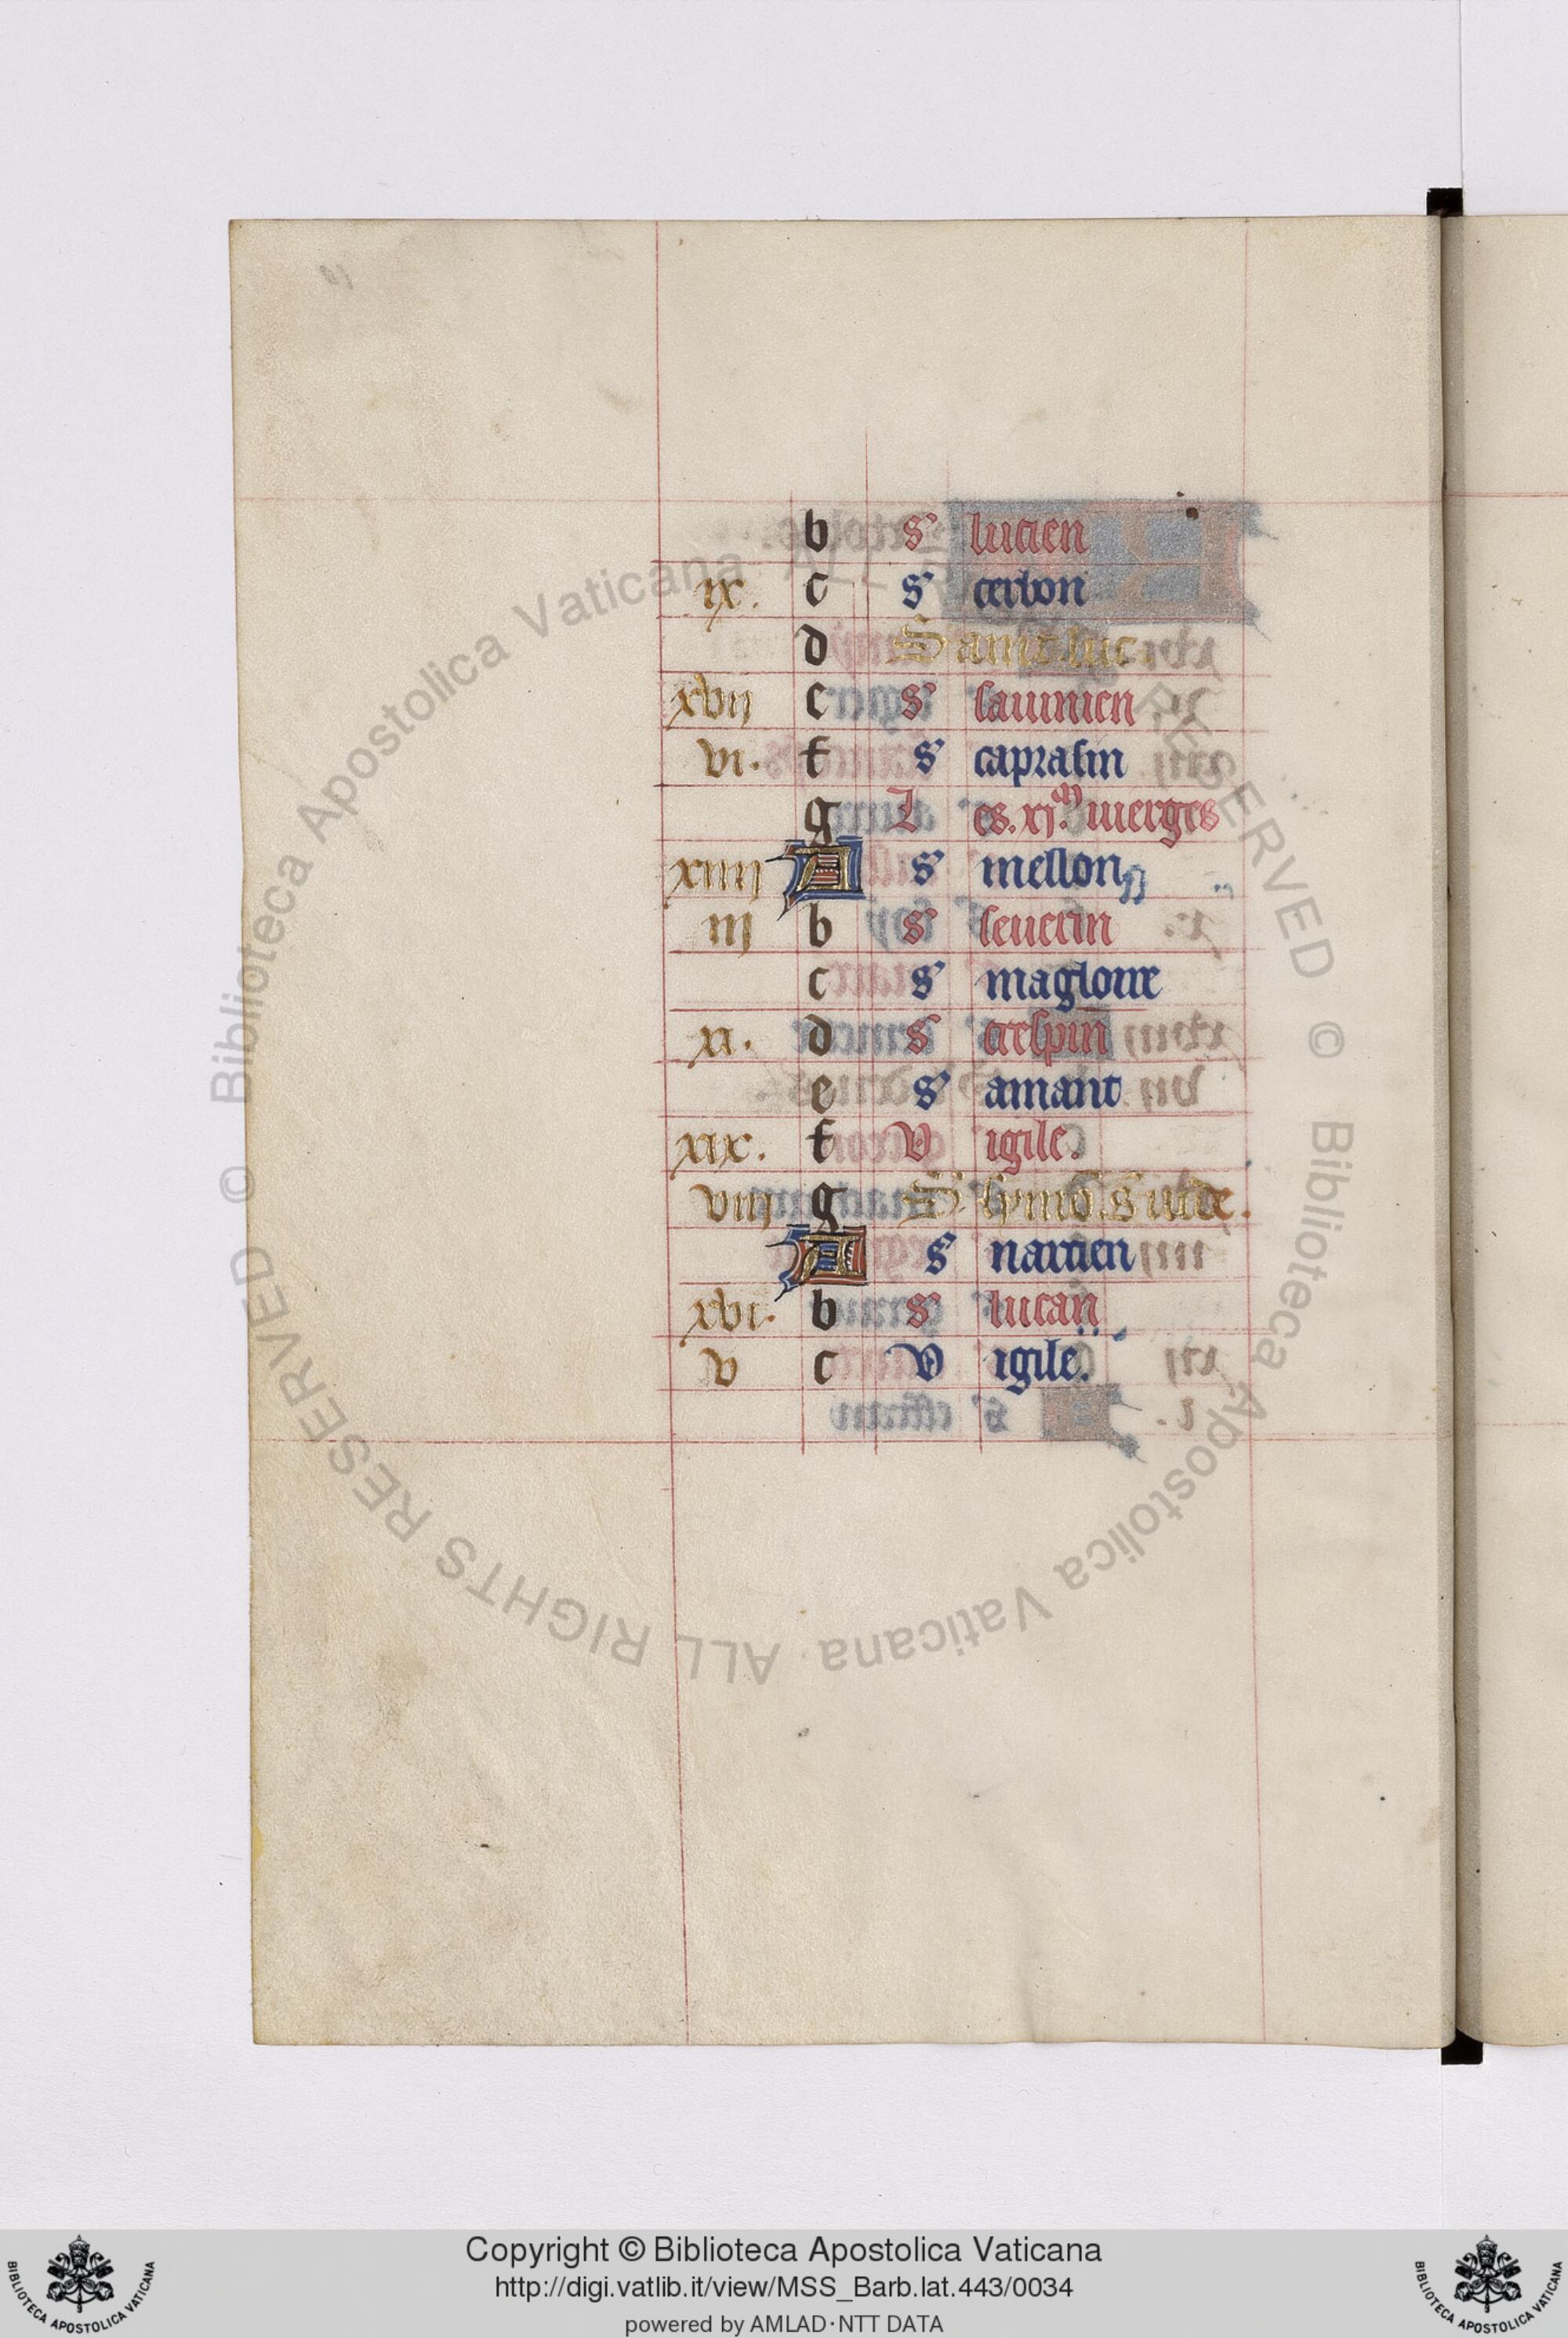 b s' lucien
ix. c s' cerbon
d Saint luc.
xvij e s' sauinien
vi. f s' caprasin
g Les. xi.m vierges
xiiij A s' mellon
iij b s' seuerin
c s' magloire
xi. d s' crespin
e s' amant
xix. f Vigile.
viij g S. symō. S iude.
A s' narcien
xvi. b s' lucan
v c Vigile.
© Biblioteca Apostolica Vaticana · ALL RIGHTS RESERVED © Biblioteca Apostolica Vaticana · ALL RIGHTS RESERVED
Copyright © Biblioteca Apostolica Vaticana
http://digi.vatlib.it/view/MSS_Barb.lat.443/0034
powered by AMLAD·NTT DATA
BIBLIOTECA APOSTOLICA VATICANA
BIBLIOTECA APOSTOLICA VATICANA